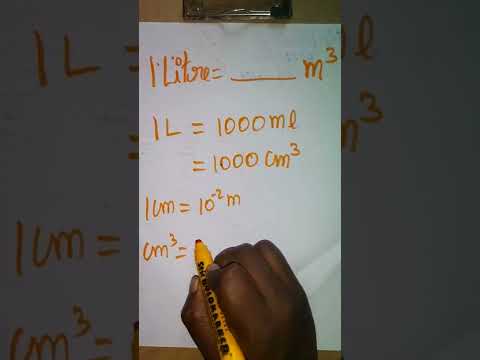 1 Litre = ____ m³
1L = 1000 ml
= 1000 cm³
1cm = 10⁻² m
cm³ =